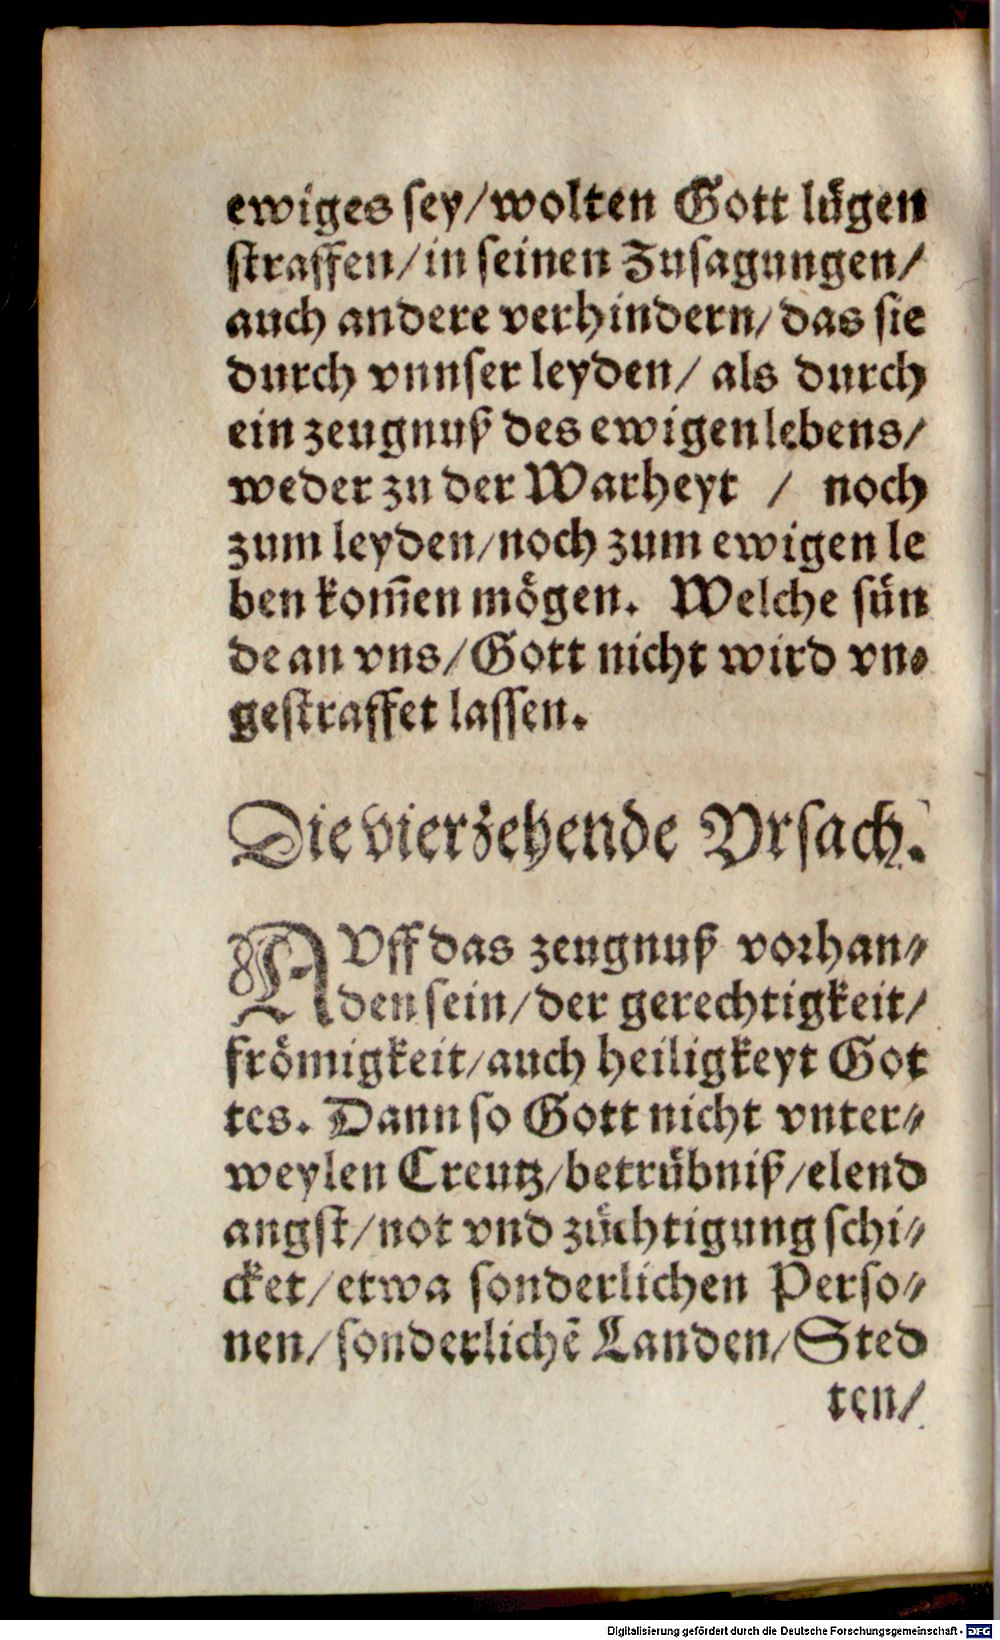 ewiges sey/wolten Gott lůgen
straffen/in seinen Zusagungen/
auch andere verhindern/das sie
durch vnnser leyden/ als durch
ein zeugnuß des ewigen lebens/
weder zu der Warheyt / noch
zum leyden/noch zum ewigen le
ben kom̄en mögen. Welche sün
de an vns/Gott nicht wird vn⸗
gestraffet lassen.
Die vierzehende Vrsach.
AVff das zeugnuß vorhan⸗
den sein/der gerechtigkeit/
frömigkeit/auch heiligkeyt Got
tes. Dann so Gott nicht vnter⸗
weylen Creutz/betrůbniß/elend
angst/not vnd zůchtigung schi⸗
cket/etwa sonderlichen Perso⸗
nen/sonderlichē Landen/Sted
ten/
Digitalisierung gefördert durch die Deutsche Forschungsgemeinschaft - DFG